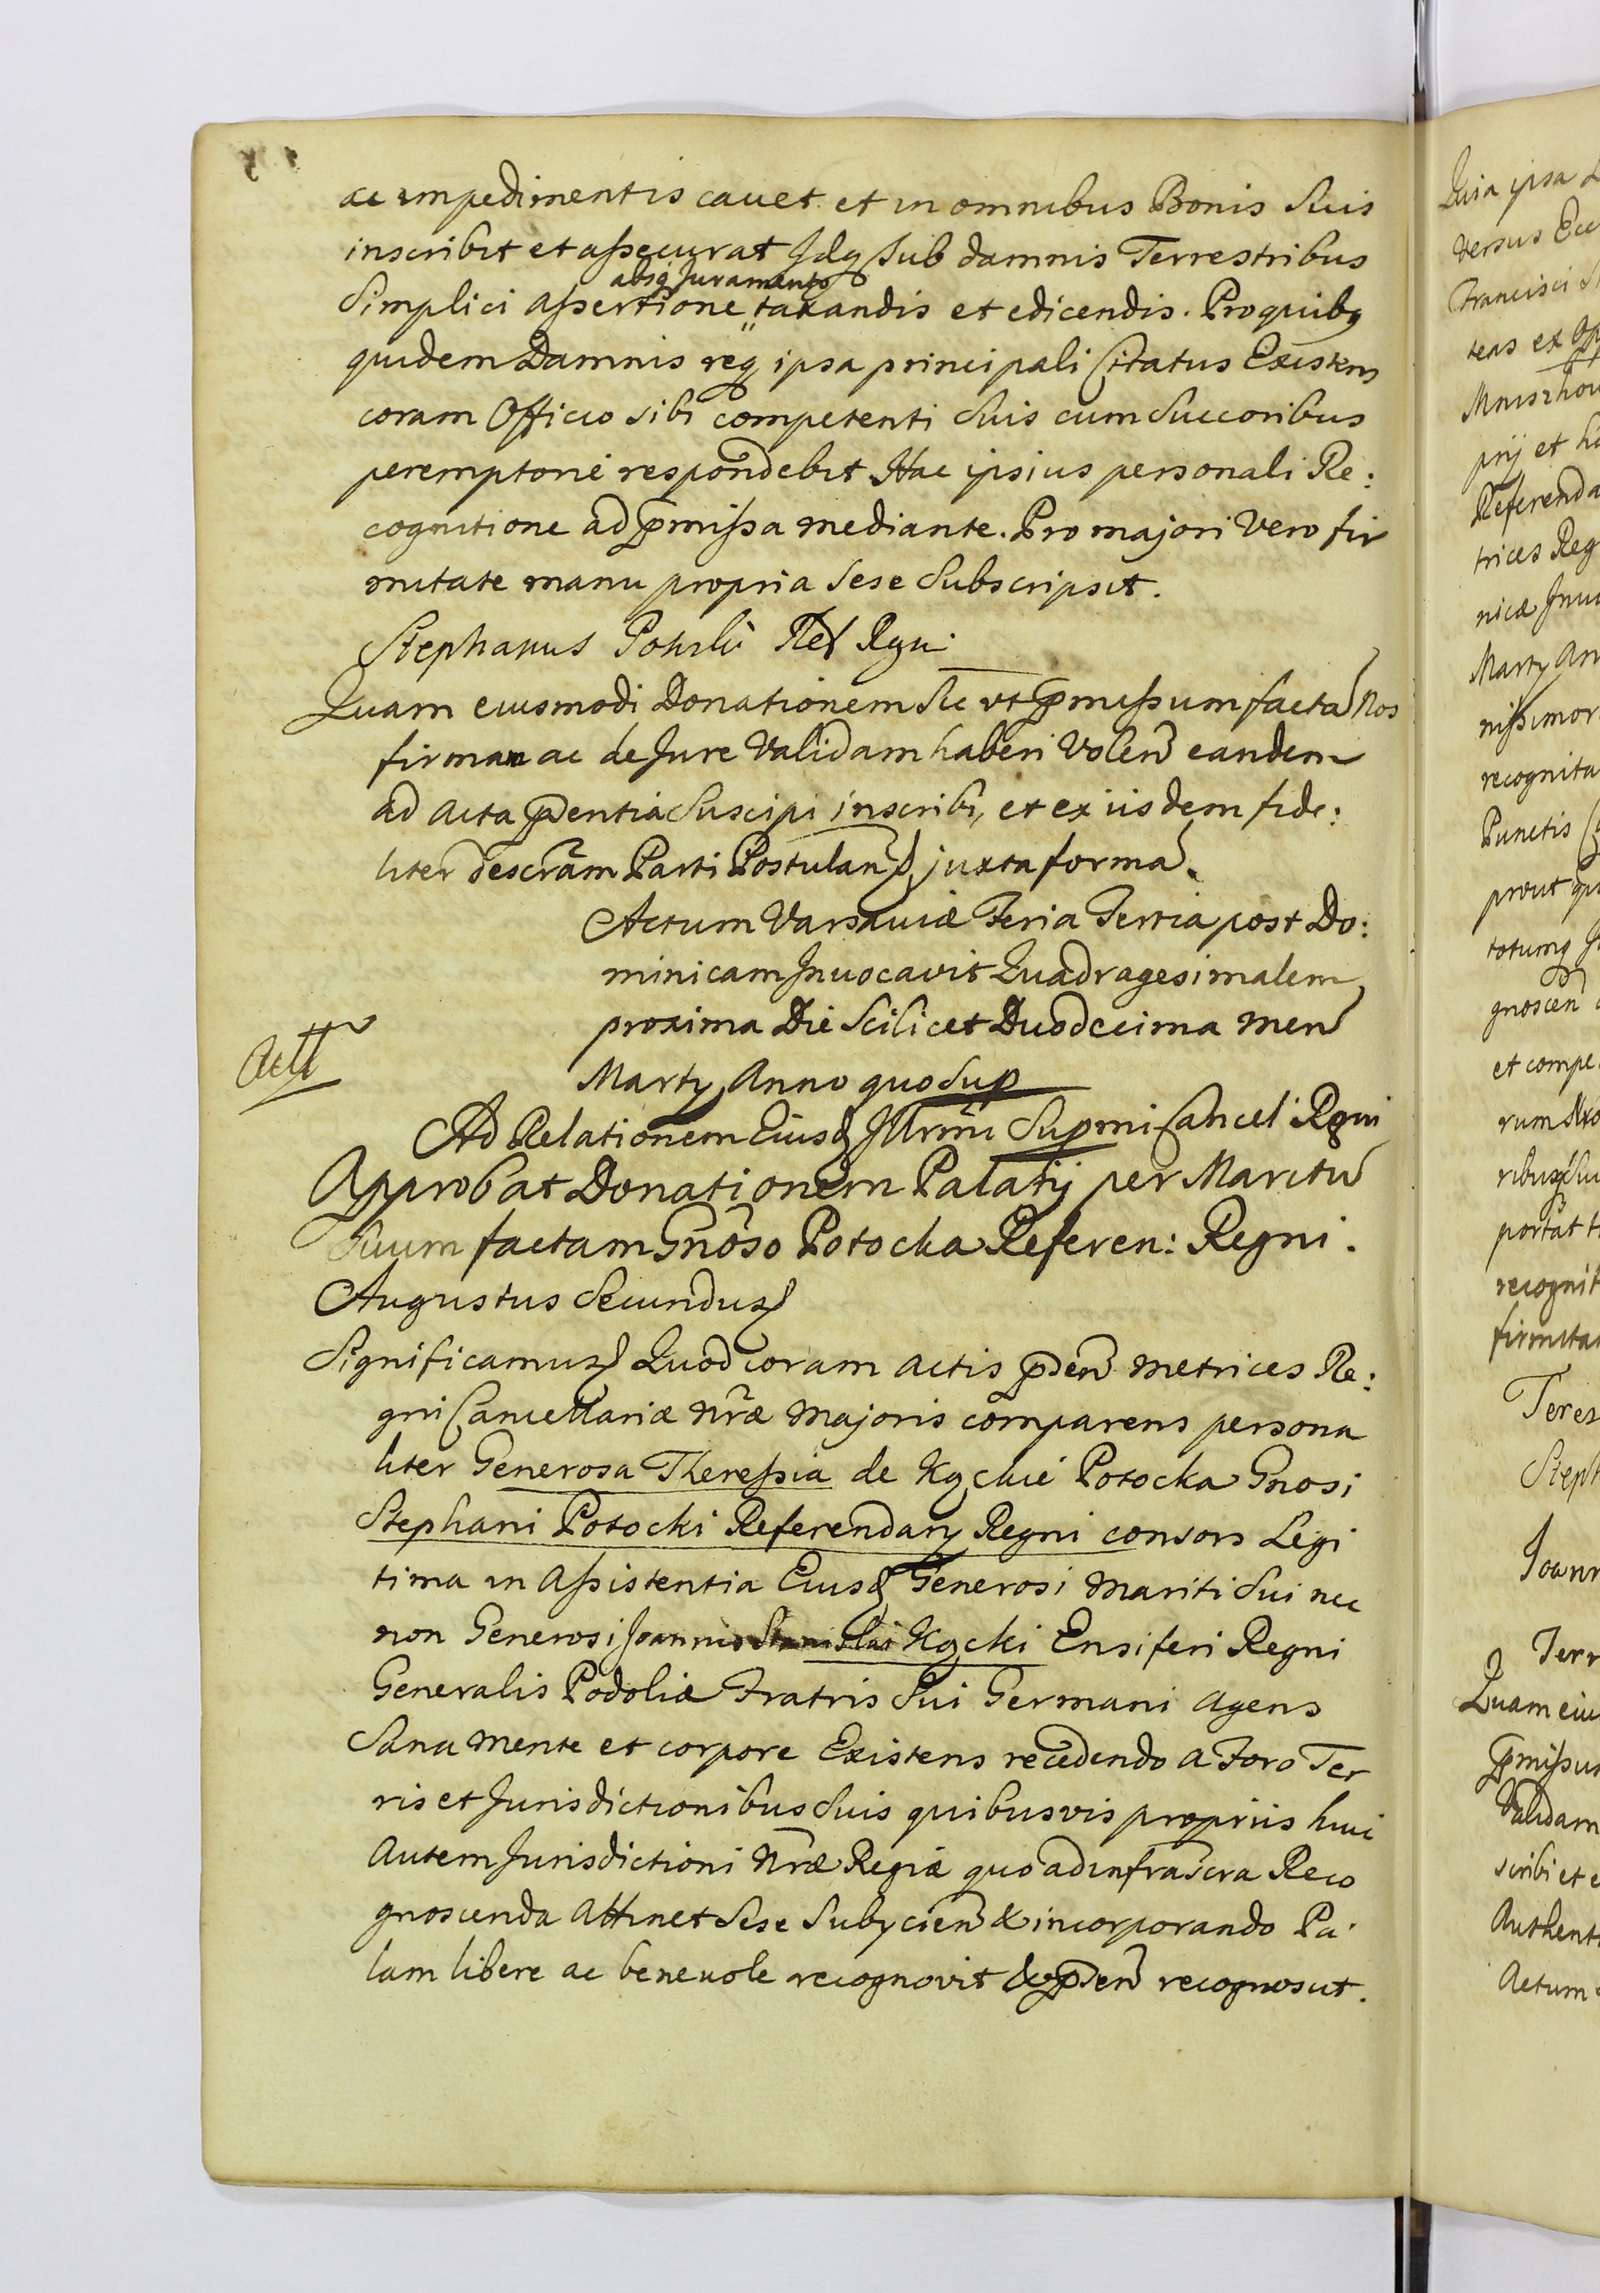 ac impedimentis cauet et in omnibus Bonis Suis
inscribit et assecurat Idq sub damnis Terrestribus
absq Juramento
Simplici assertione taxandis et edicendis. Pro quibq
quidem Damnis req ipsa principali Citatus Existens
coram Officio sibi competenti Suis cum Succoribus
peremptorie respondebit Hac ipsius personali Re:
cognitione ad pmissa mediante. Pro majori Vero fir
mitate manu propria Sese Subscripsit.
Stephanus Rgni
Quam eiusmodi Donationem Sic vt pmissum facta Nos
firmam ac de Jure Validam haberi Volen eandem
ad acta pdentia Suscipi inscribi, et ex iisdem fide:
liter descram Parti Postulan juxta forma.
Actum Varsauiæ Feria Tertia post Do:
minicam Inuocavit Quadragesimalem
proxima Die Scilicet Duodecima men
Martij Anno quo Sup
Ad Relationem Eiusd Illrmi Supmi Cancel Rgni
Approbat Donationem Palatij per Maritu
Suum factam Gnoso Potocka Referen: Regni.
Augustus Secundus
Significamus Quod coram actis pden metrices Re:
gni Cancellariæ nræ majoris comparens persona
liter Generosa Theressia de Kg̨ckie Potocka Gnosi
Stephani Potocki Referendarij Regni consors Legi
tima in Assistentia Eiusd Generosi mariti Sui nec
non Generosi Joannis Stanislai Kg̨cki Ensiferi Regni
Generalis Podoliæ Fratris Sui Germani agens
Sana mente et corpore Existens recedendo a Foro Ter
ris et Jurisdictionibus Suis quibusvis propriis huic
autem Jurisdictioni Nræ Regiæ quo ad infrascra Reco
gnoscenda attinet Sese Subycien & incorporando Pa
lam libere ac beneuole recognovit &pden recognoscit.
Quia ipsa
versus
Francisci
tens ex
prij et
Referenda
trices Reg
nicæ
Martij An
nissimor
recognita
Punctis
prout
totumq
gnoscen
et compe
rum
portat
recognit
firmita
Teres
Steph
Joann
Terr
Quam eiu
pmissu
Validam
scribi et e
Authent
Actum